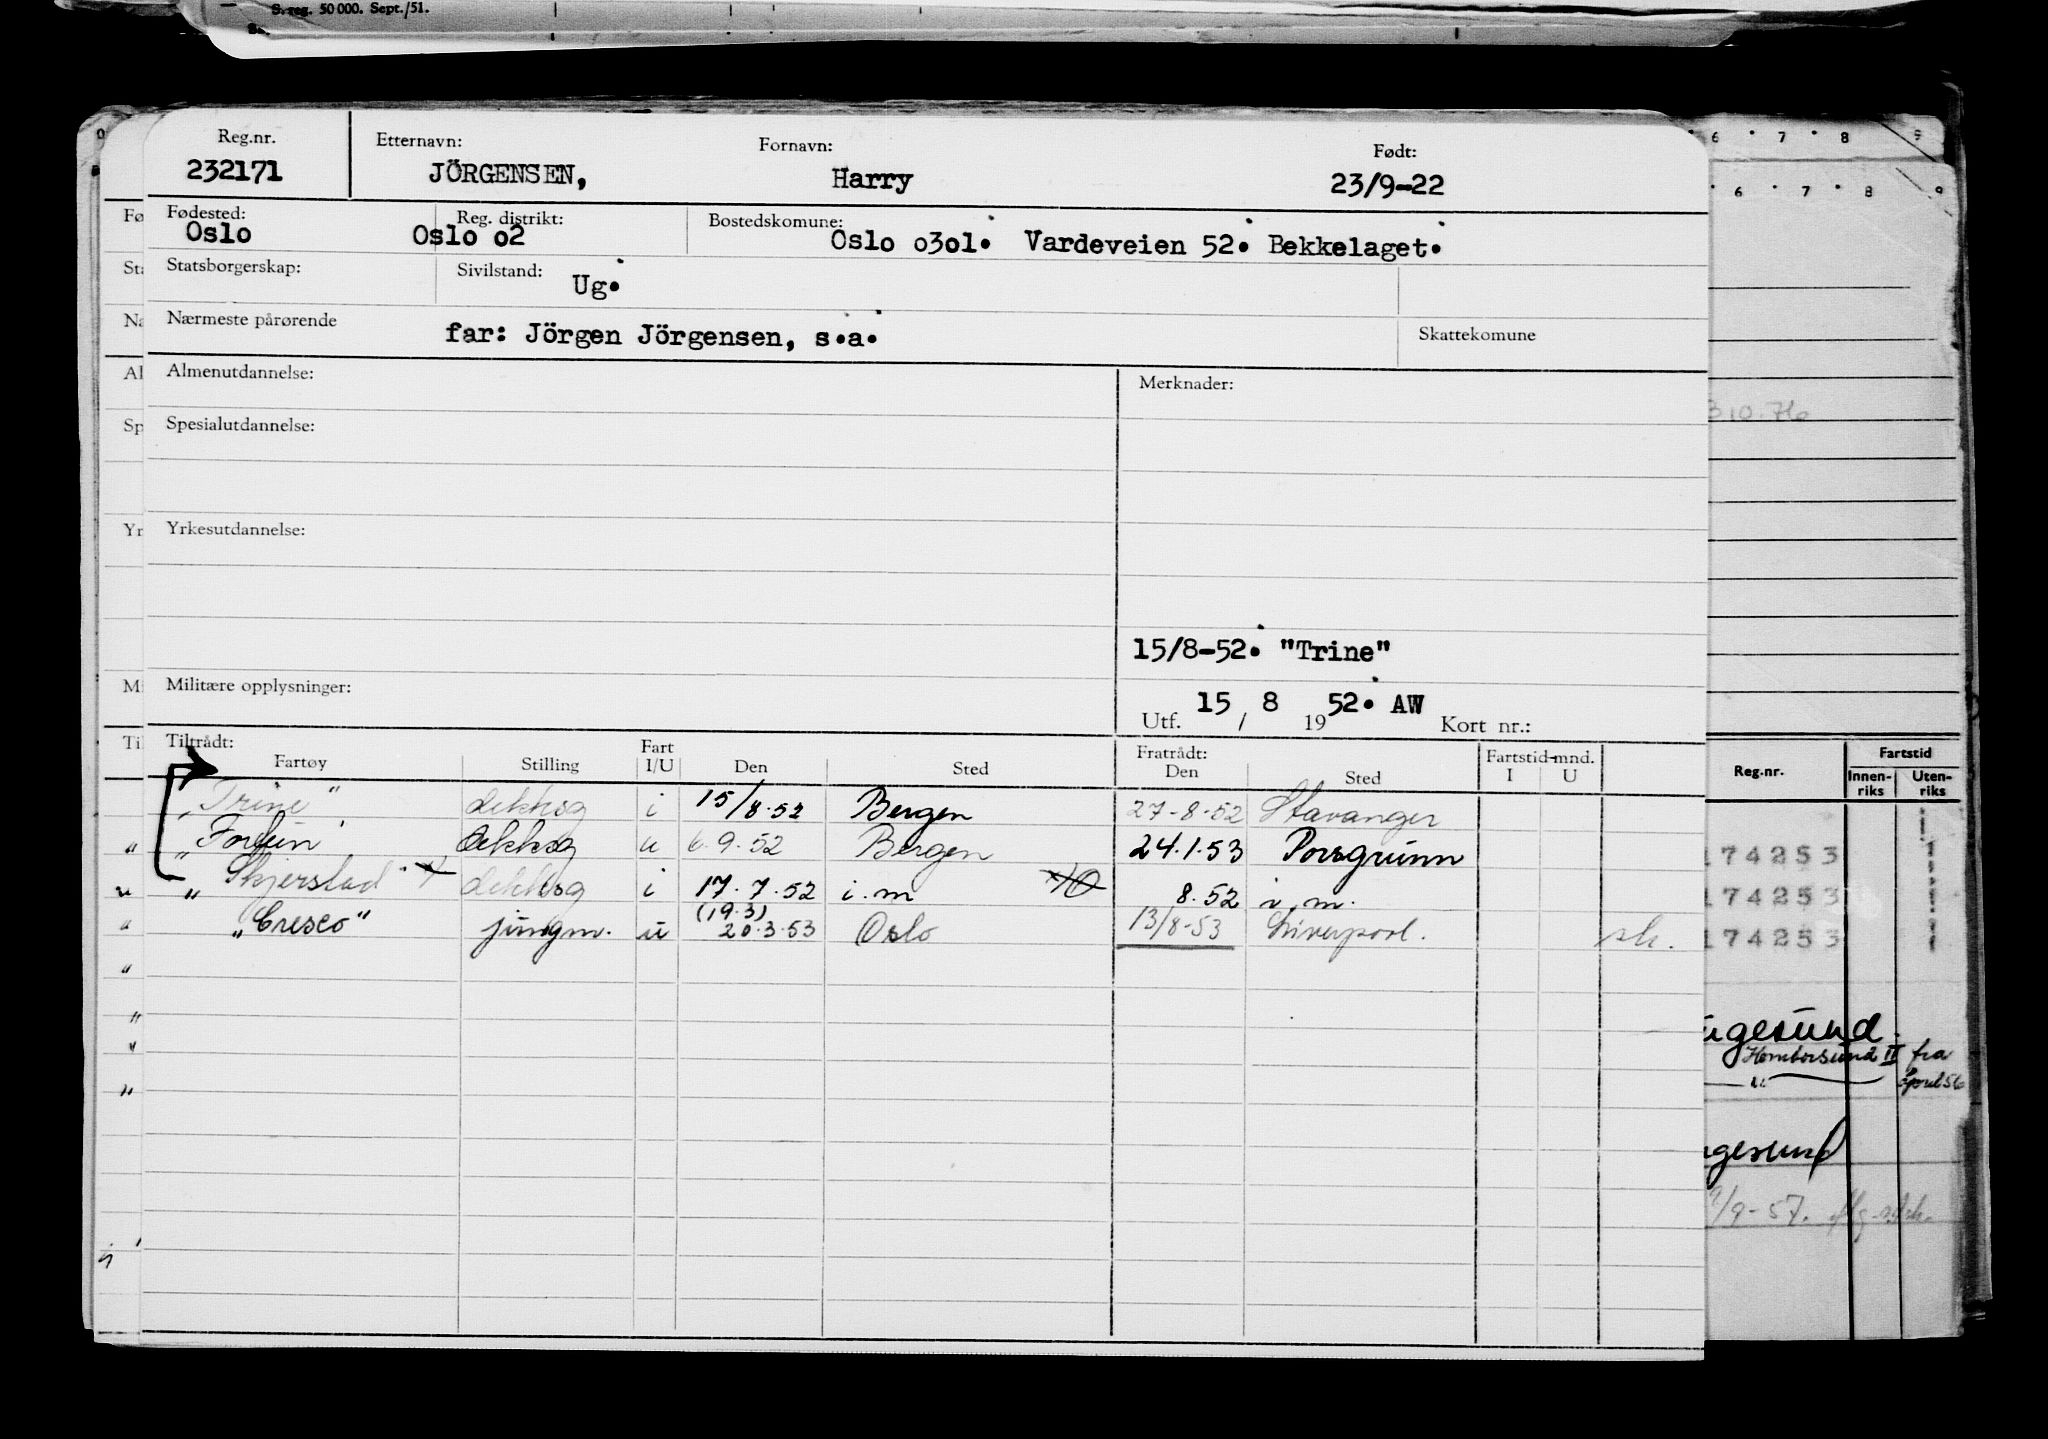 S. reg. 50 000. Sept./51.
Reg.nr. Etternavn: Fornavn: Født:
232171 JÖRGENSEN, Harry 23/9-22
Fødested: Reg. distrikt: Bostedskomune:
Oslo Oslo o2 Oslo o3ol. Vardeveien 52. Bekkelaget.
Statsborgerskap: Sivilstand: Ug.
Nærmeste pårørende far: Jörgen Jörgensen, s.a. Skattekomune
Almenutdannelse: Merknader:
Spesialutdannelse:
Yrkesutdannelse:
15/8-52. "Trine"
Militære opplysninger:
Utf. 15 / 8 19 52. AW Kort nr.:
Tiltrådt: Fratrådt:
Fartøy Stilling Fart I/U Den Sted Den Sted Fartstid-mnd. I U
"Trine" dekksg i 15/8.52 Bergen 27-8-52 Stavanger
"Fortun" dekksg u 6.9.52 Bergen 24.1.53 Porsgrunn
"Skjerstad" dekksg i 17.7.52 i.m 8.52 i.m.
(19.3)
"Cresco" jungm. u 20.3.53 Oslo 13/8-53 Liverpool.
6 7 8 9
6 7 8 9
310.76
Reg.nr. Fartstid
Innenriks Utenriks
174253
174253
174253
ugesund
Homborsund II fra
april 56
ngesund
/9-57.